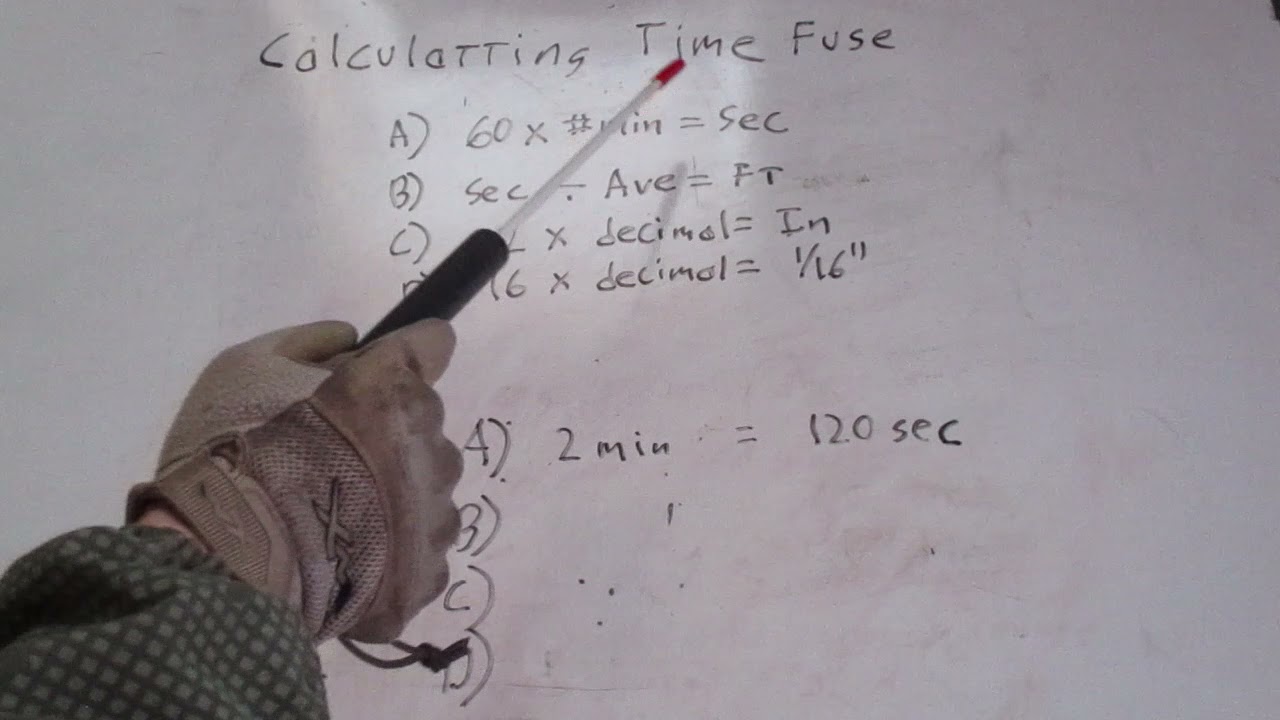 Calculatting Time Fuse
A) 60 x #min = Sec
B) Sec ÷ Ave = FT
C) x decimal = In
16 x decimal = 1/16"
A) 2 min = 120 sec
B)
C)
D)